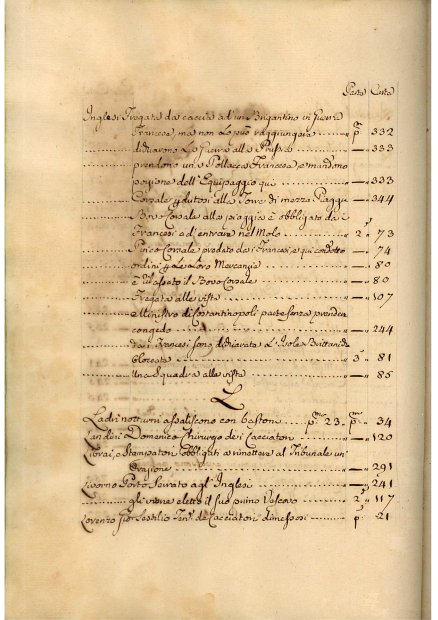 Parte Carte
Inglesi Fregata da caccia ad un Brigantino di Guerra
Francese, ma non Lo può raggiungere p.ª 332
dichiarono La Guerra alla Prussia 333
prendono una Pollacca Francese, e mandano
porzione dell'Equipaggio qui 333
Corsale 344
Bovo Corsale alla spiaggia è obbligato da i
Francesi ad entrare nel Molo 2ª 73
Pinco Corsale predato da Francesi, e qui condotto 74
ordini p. Le Loro Mercanzie 80
è rilasciato il Bovo Corsale 80
Fregata alla vista 107
e Ministro di Costantinopoli parte senza prender
congedo 244
da Francesi sono dichiarate L'Isole Brittaniche
bloccate 3ª 81
una Squadra alla vista 85
L
Ladri notturni assaliscono con bastone p.mo 23. p.ª 34
Landini Domenico Chirurgo dei Cacciatori 120
Librai, e Stampatori obbligati a rimettere al Tribunale un
Orazione 291
Livorno Porto Serrato agl'Inglesi 241
gli viene eletto il suo primo Vescovo 2ª 117
Lorenzo Ten. de Cacciatori dimessosi p.ª 21